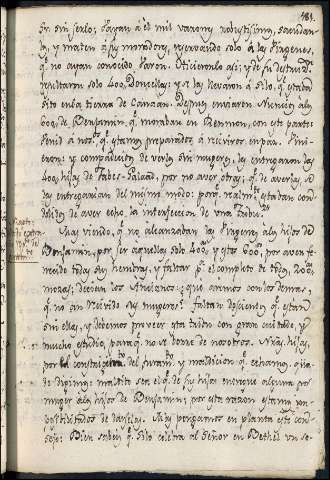 sin serlo; vayan à el mil varones robustissimos,
y maten à sus moradores, reservando solo à las Virgenes,
q. no ayan conocido Varon. Hicieronlo assi; y de su destruc.
resultaron solo 400 Doncellas; y se las llevaron à Silo, q. està
sito en la tierra de Canaan. Despues enviaron Nuncios à los
600, de Benjamin, q. moraban en Remmon, con este parte:
Venid à nos. q. estamos preparados, à reciviros en paz. Vinie-
ron: y compadecidos de verlos sin mugeres, les entregaron las
400, hijas de Jabes-Galaad, por no aver otras; q. de averlas, se
las entregarian del mismo modo: porq. realm. estaban con-
dolidos de aver echo la interfeccion de una tribu.
Mas viendo, q. no alcanzaban las Virgenes a los hijos de
Benjamin, por ser aquellas solo 400, y estos 600, por aver fe-
necido todas sus hembras, y faltar p. el completo de todos, 200,
mozas; decian los Ancianos: que aremos con los demas,
q. no an recivido sus mugeres? Faltan doscientas q. estan
sin ellas, y debemos proveer esta tribu con gran cuidado, y
mucho estudio, para q. no se borre de nosotros. Nras. hijas,
por la constriccion del juram. y maldicion q. echamos, qua-
do digimos: maldito sea el q. de sus hijas entregue alguna por
muger a los hijos de Benjamin; por esta razon estamos im-
posibilitados de darselas. Mas pongamos en planta este con-
sejo: Bien sabeis q. Silo celebra al Señor en Bethèl un se-